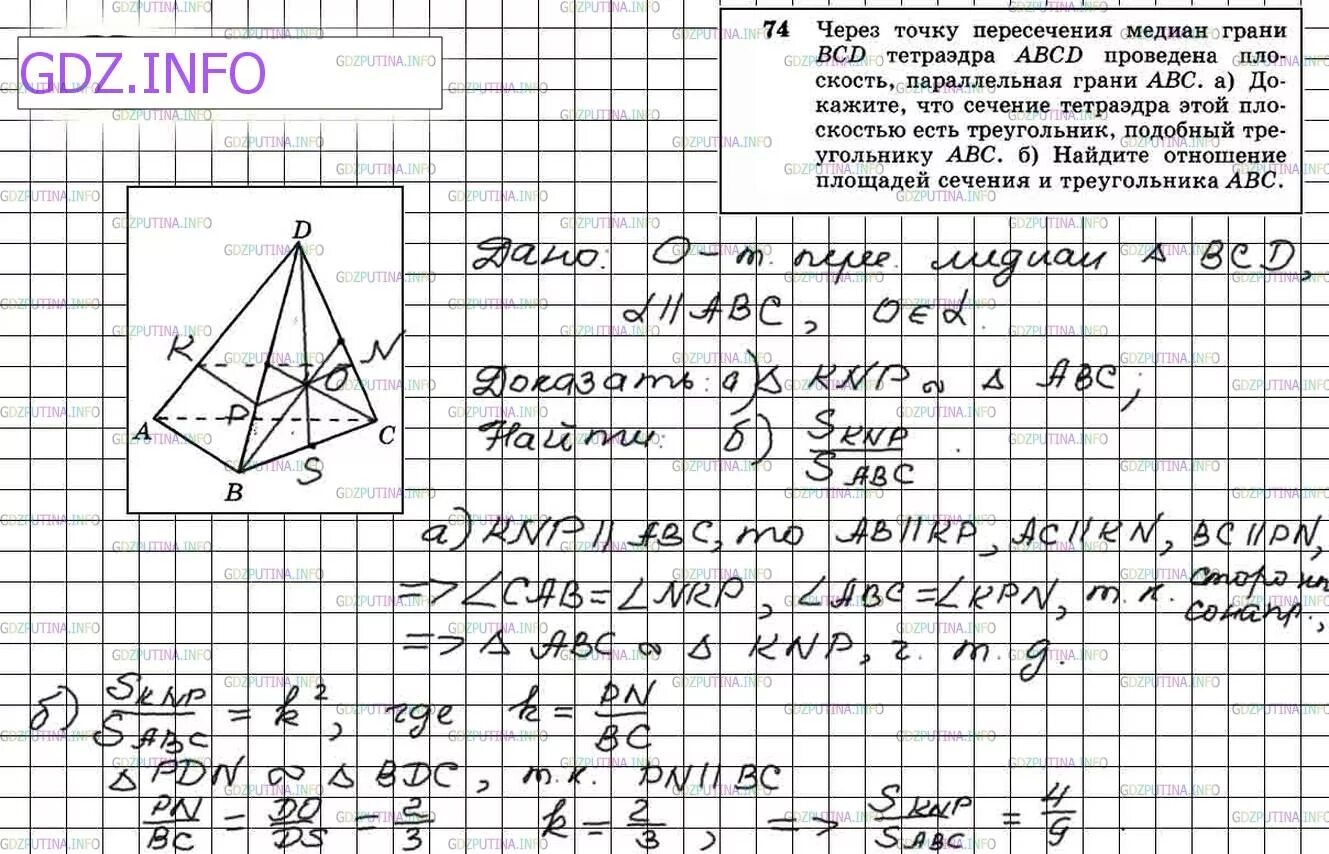 GDZ.INFO
74 Через точку пересечения медиан грани
BCD тетраэдра ABCD проведена пло-
скость, параллельная грани ABC. а) До-
кажите, что сечение тетраэдра этой пло-
скостью есть треугольник, подобный тре-
угольнику ABC. б) Найдите отношение
площадей сечения и треугольника ABC.
D
K
N
O
P
A
C
S
B
Дано: O – т. пере. медиан Δ BCD,
α || ABC, O ∈ α.
Доказать: а) Δ KNP ∾ Δ ABC;
Найти: б) S KNP / S ABC.
а) KNP || ABC, то AB || KP, AC || KN, BC || PN,
=> ∠CAB = ∠NKP, ∠ABC = ∠KPN, т.к. сторон
сонапр.,
=> Δ ABC ∾ Δ KNP, ч. т. д.
б) S KNP / S ABC = k², где k = PN / BC
Δ PDN ∾ Δ BDC, т.к. PN || BC
PN / BC = DO / DS = 2 / 3 k = 2 / 3, => S KNP / S ABC = 4 / 9.
GDZPUTINA.INFO